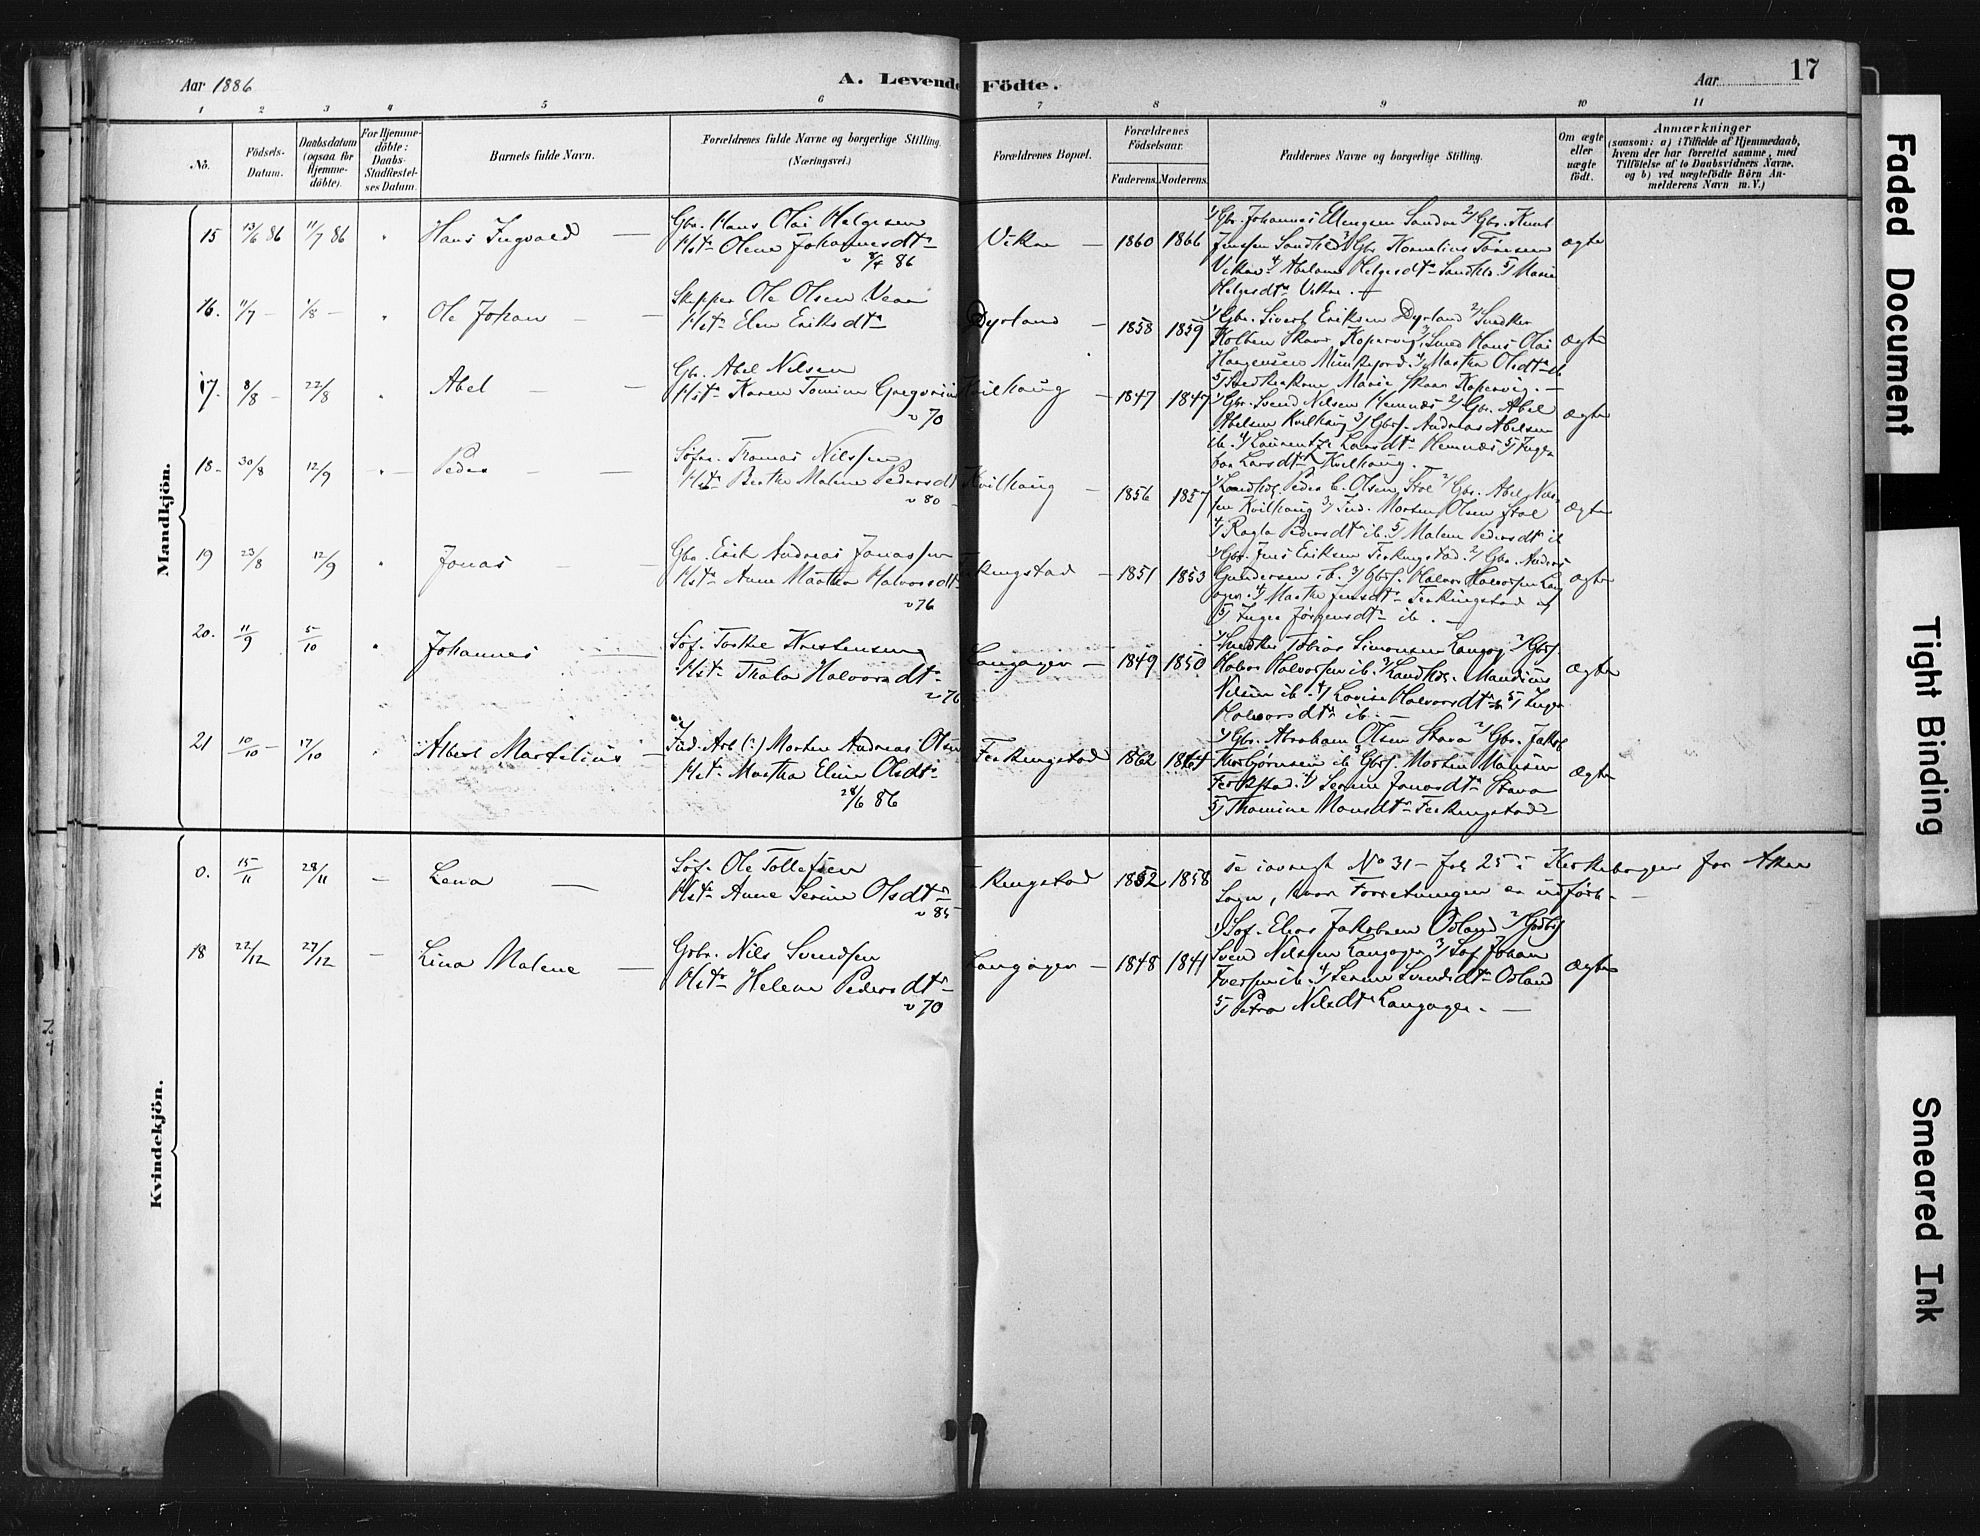 Aar 1886
A. Levende Födte.
Aar
17
1 2 3 4 5 6 7 8 9 10 11
No.
Födsels-Datum.
Daabsdatum (ogsaa for Hjemme-döbte).
For Hjemme-döbte: Daabs-Stadfæstel-ses Datum.
Barnets fulde Navn.
Forældrenes fulde Navne og borgerlige Stilling. (Næringsvei.)
Forældrenes Bopæl.
Forældrenes Födselsaar.
Faderens. Moderens.
Faddernes Navne og borgerlige Stilling.
Om ægte eller uægte födt.
Anmærkninger
(saasom: a) i Tilfælde af Hjemmedaab, hvem der har forrettet samme, med Tilföielse af to Daabsvidners Navne, og b) ved uægtefödte Börn An-melderens Navn m. V.)
Mandkjön.
15 13/6 86 11/7 86 " Hans Ingvald —
Gbr. Hans Olai Helgesen
Hst. Olene Johannesdtr
v 8/4 86
Vikre — 1860 1866
1/ Gbr. Johannes Ellengsen Sandve 2/ Gbr. Knut
Jensen Sandhl 3/ Gbr. Kornelius Tøresen
Vikre 4/ Abelone Helgesdtr Sandhl 5/ Marie
Helgesdtr Vikre. —
ægte
16. 11/7 — 1/8 — " Ole Johan —
Skipper Ole Olsen Vear
Hst. Elen Eriksdtr
Dyrland — 1858 1859
1/ Gbr. Sivert Eriksen Dyrland 2/ Snedker
Kolben Skaar Kopervig 3/ Smed Hans Olai
4/ Martha Olsdtr
5/ Marie Skaar Kopervig. —
ægte
17. 8/8 — 22/8 " Abel —
Gb. Abel Nilsen
Hst. Karen Tomine Gregorius
v 70
Kvilhaug — 1847 1847
1/ Gbr. Svend Nilsen Hemnæs 2/ Gbr. Abel
Abelsen Kvilhaug 3/ Gbrs. Andreas Abelsen
ib. 4/ Laurentze Larsdtr Hemnæs 5/ Inge
bor Larsdtr Kvilhaug.
ægte
18. 30/8 12/9 " Peder —
Søfar. Tomas Nilssen
Hst. Berthe Malene Pedersdt
v 80
Kvilhaug — 1856 1857
1/ Landhdl. Peder C. Olsen Stol 2/ Gbr. Abel Nil-
sen Kvilhaug 3/ Ind. Morten Olsen Stol
4/ Ragla Pedersdtr ib. 5/ Malene Pedersdtr ib
ægte
19 23/8 12/9 " Jonas —
Gbr. Erik Andreas Jonassen
Hst. Anne Martha Halvorsdtr
v 76
kingstad — 1851 1853
1/ Gbr. Jens Eriksen Ferkingstad. 2/ Gbr. Anders
Gundersen ib. 3/ Gbrs. Halvor Halvorsen Lang
aagen. 4/ Marthe Jensdtr Ferkingstad og
5/ Inger Jørgensdtr ib. —
ægte
20. 11/9 5/10 " Johannes —
Søf. Torkel Kristensen
Hst. Thala Halvorsdtr
v 76
Langager — 1849 1850
1/ Snedker Tobias Simonsen Langag 2/ Gbrs.
Halvor Halvorsen ib. 3/ Landhdl. Mandius
Nilsen ib. 4/ Lovise Halvorsdtr ib 5/ Inger
Halvorsdtr ib. —
ægte
21 10/10 — 17/10 " Albert Martelius —
Ind. Arb (:) Morten Andreas Olsen
Hst. Martha Eline Olsdtr
28/6 86
Ferkingstad 1862 1864
1/ Gbr. Abraham Olsen Stava 2/ Gbr. Jakob
Thorbjørnsen ib 3/ Gbrs. Morten Monsen
Ferkstad. 4/ Serine Jonasdtr Stava
5/ Thomine Monsdtr Ferkingstad
ægte
Kvindekjön.
0. 15/11 28/11 — Lena —
Søf. Ole Tollefsen
Hst. Anne Serine Olsdtr
v 85
kingstad — 1852 1858
se iøvrigt No 31 - fol 25 i Kirkebogen for Akre
Sogn, hvor Forretningen er udført —
18 22/12 27/12 — Lina Malene —
Gbr. Nils Svendsen
Hst. Helene Pedersdtr
v 70
Langager — 1848 1841
1/ Søf. Elias Jakobsen Odland 2/ Gbrs
Svend Nilssen Langager 3/ Søf Johan
Iversen ib. 4/ Serine Svendsdtr Odland
5/ Petra Nilsdtr Langager. —
ægte
Faded Document
Tight Binding
Smeared Ink